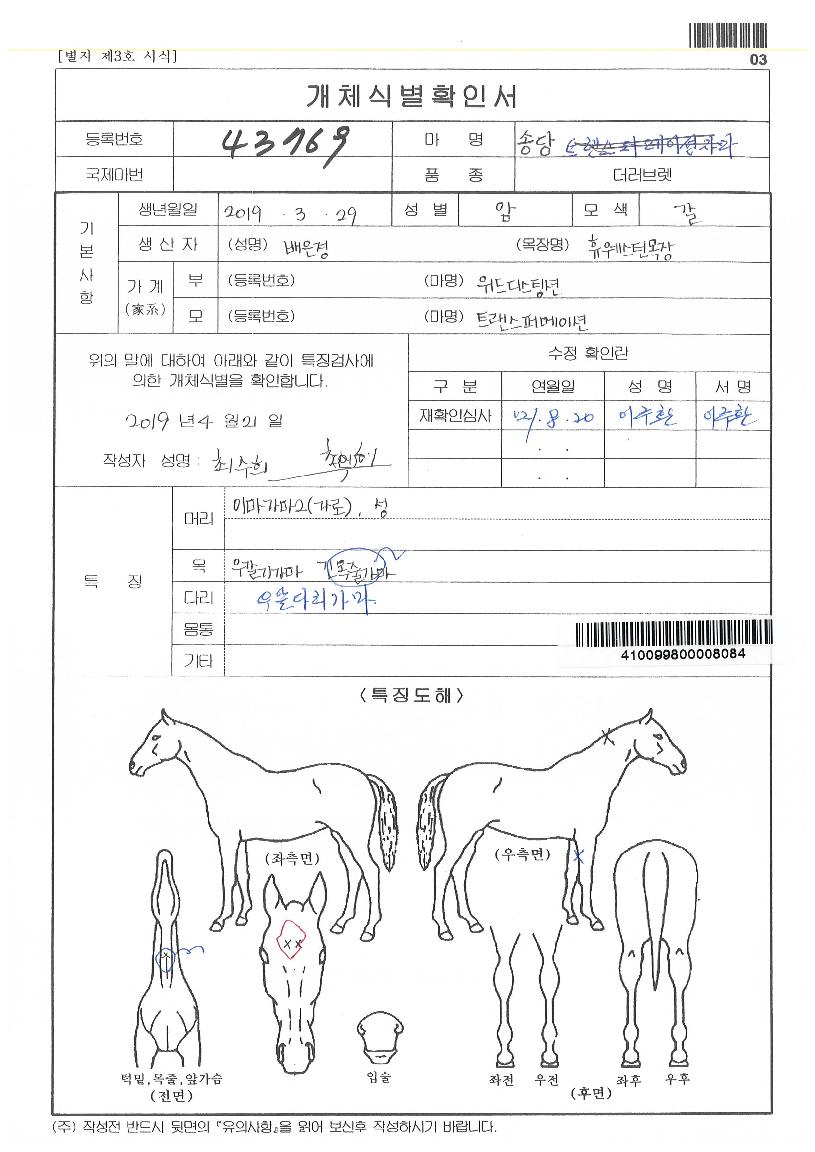 [별지 제3호 서식]
03
개체식별확인서
등록번호 43769 마 명 송당 트랜스퍼메이션자마
국제마번 품 종 더러브렛
기본사항
생년월일 2019 . 3 . 29 성 별 암 모 색 갈
생 산 자 (성명) 배은경 (목장명) 휴웨스턴목장
가 계 (家系) 부 (등록번호) (마명) 위드디스팅션
모 (등록번호) (마명) 트랜스퍼메이션
위의 말에 대하여 아래와 같이 특징검사에
의한 개체식별을 확인합니다.
2019 년 4 월 21 일
작성자 성명 : 최수희
수정 확인란
구 분 연월일 성 명 서 명
재확인심사 '21. 8. 20 이주환 이주환
. .
. .
특 징
머리 이마가마2(가로), 성
목 우갈기가마 긴목줄가마
다리 우앞다리가마
몸통
기타
410099800008084
<특징도해>
(좌측면)
(우측면)
턱밑,목줄,앞가슴
(전면)
입술
좌전 우전
좌후 우후
(후면)
(주) 작성전 반드시 뒷면의 『유의사항』을 읽어 보신후 작성하시기 바랍니다.